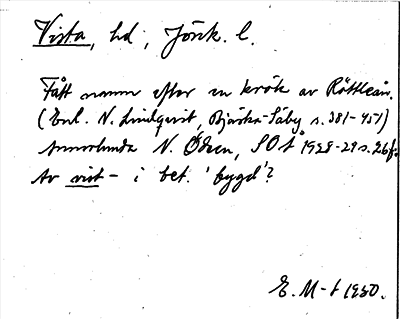 Vista, hd, Jönk. l.
Fått namn efter en krök av Röttleån.
(Enl. N. Lindqvist, Bjärka-Säby s. 381-451)
Annorlunda N. Ödeen, SOÅ 1928-29 s. 26 f.
Av vist- i bet. 'bygd'?
E. M-t 1950.